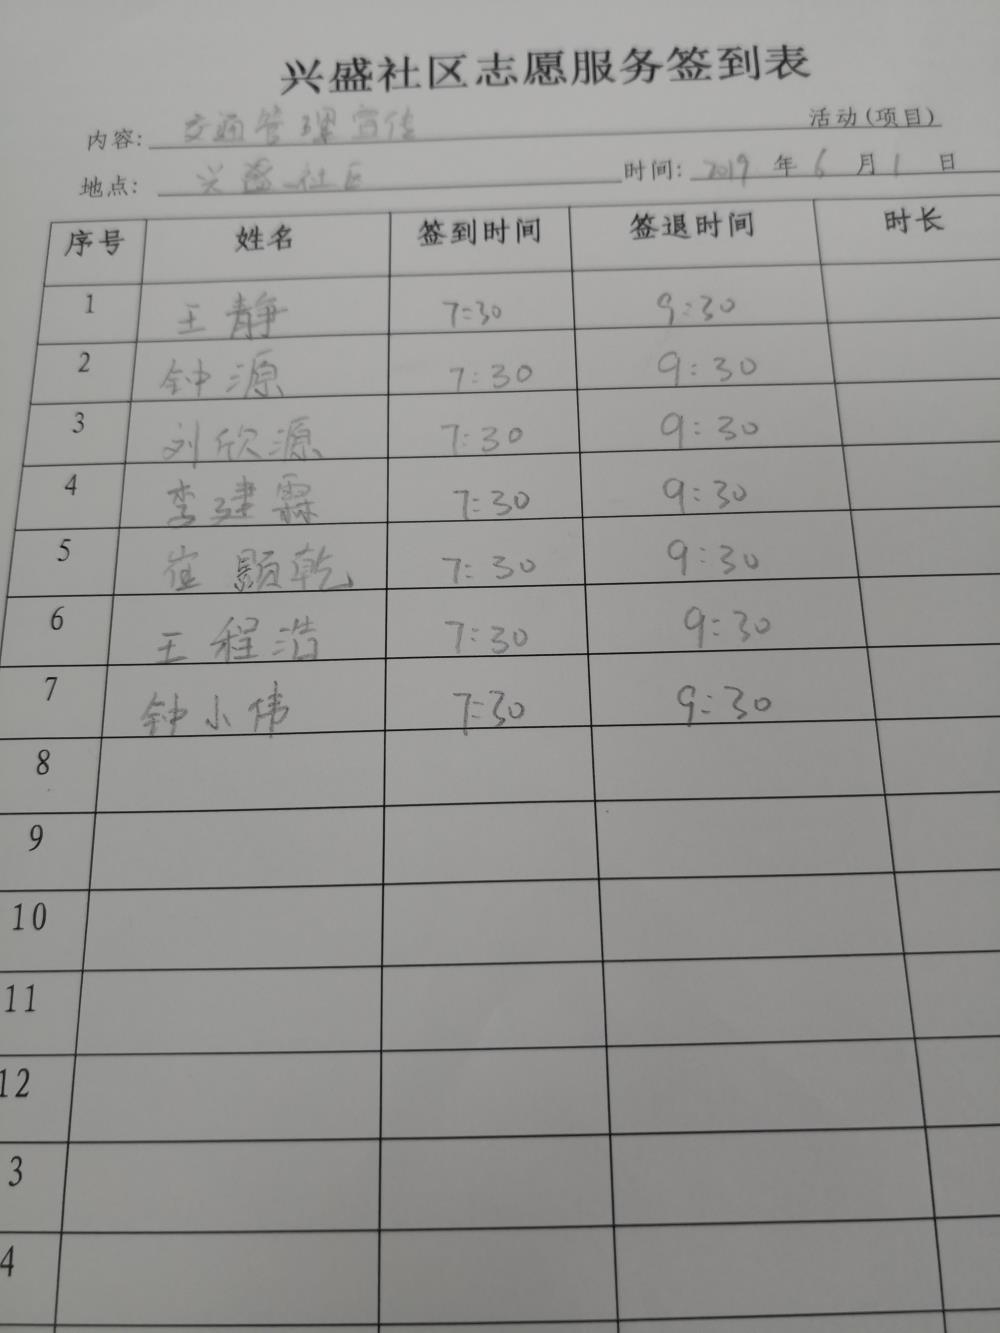 兴盛社区志愿服务签到表
内容: 交通管理宣传 活动(项目)
地点: 兴盛社区 时间: 2019 年 6 月 1 日
序号 姓名 签到时间 签退时间 时长
1 王静 7:30 9:30
2 钟源 7:30 9:30
3 刘欣源 7:30 9:30
4 李建霖 7:30 9:30
5 崔颢乾 7:30 9:30
6 王程浩 7:30 9:30
7 钟小伟 7:30 9:30
8
9
10
11
12
3
4